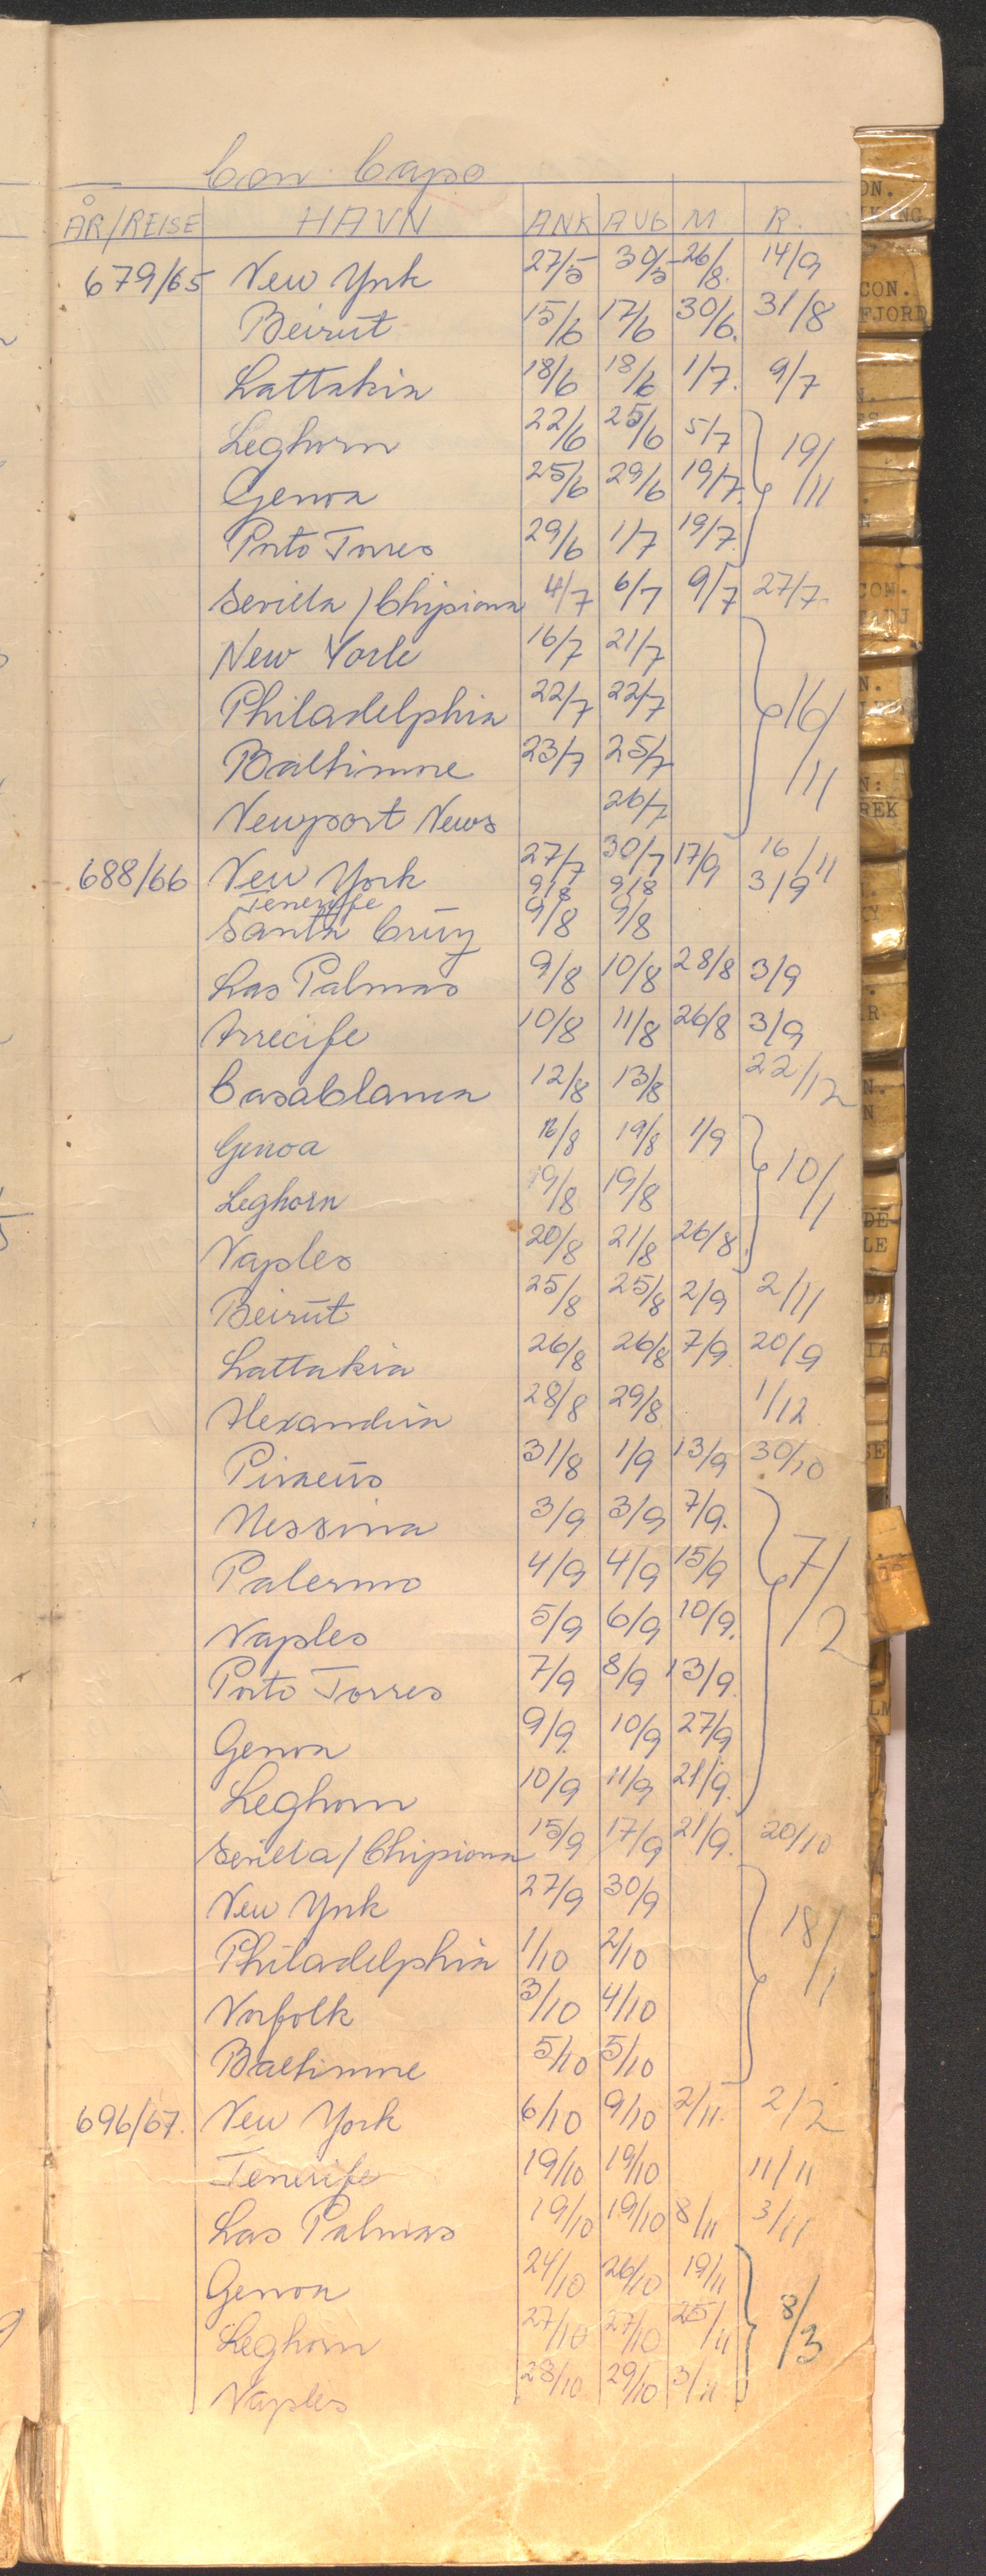 Con Capo
ÅR/REISE HAVN ANK AVG M R.
679/65 New York 27/5 30/5 26/8. 14/9
Beirut 15/6 17/6 30/6. 31/8
Lattakia 18/6 18/6 1/7. 9/7
Leghorn 22/6 25/6 5/7
Genoa 25/6 29/6 19/7. 19/11
Porto Torres 29/6 1/7 19/7.
Sevilla / Chipiona 4/7 6/7 9/7 27/7.
New York 16/7 21/7
Philadelphia 22/7 22/7 16/11
Baltimore 23/7 25/7
Newport News 26/7
688/66 New York 27/7 30/7 17/9 16/11
Teneriffe 9/8 9/8 3/9
Santa Cruz 9/8 9/8
Las Palmas 9/8 10/8 28/8 3/9
Arrecife 10/8 11/8 26/8 3/9
Casablanca 12/8 13/8 22/12
Genoa 16/8 19/8 1/9
Leghorn 19/8 19/8 10/1
Naples 20/8 21/8 26/8.
Beirut 25/8 25/8 2/9 2/11
Lattakia 26/8 26/8 7/9. 20/9
Alexandria 28/8 29/8 1/12.
Piraeus 31/8 1/9 13/9 30/10
Messina 3/9 3/9 7/9.
Palermo 4/9 4/9 15/9 7/2
Naples 5/9 6/9 10/9.
Porto Torres 7/9 8/9 13/9.
Genoa 9/9. 10/9 27/9
Leghorn 10/9 11/9 21/9.
Sevilla / Chipiona 15/9 17/9 21/9. 20/10
New York 27/9 30/9
Philadelphia 1/10 2/10 18/1
Norfolk 3/10 4/10
Baltimore 5/10 5/10
696/67. New York 6/10 9/10 2/11. 2/2
Tenerife 19/10 19/10 11/11
Las Palmas 19/10 19/10 8/11 3/11
Genoa 24/10 26/10 19/11
Leghorn 27/10 27/10 25/11 8/3
Naples 28/10 29/10 3/11
CON.
FJORD